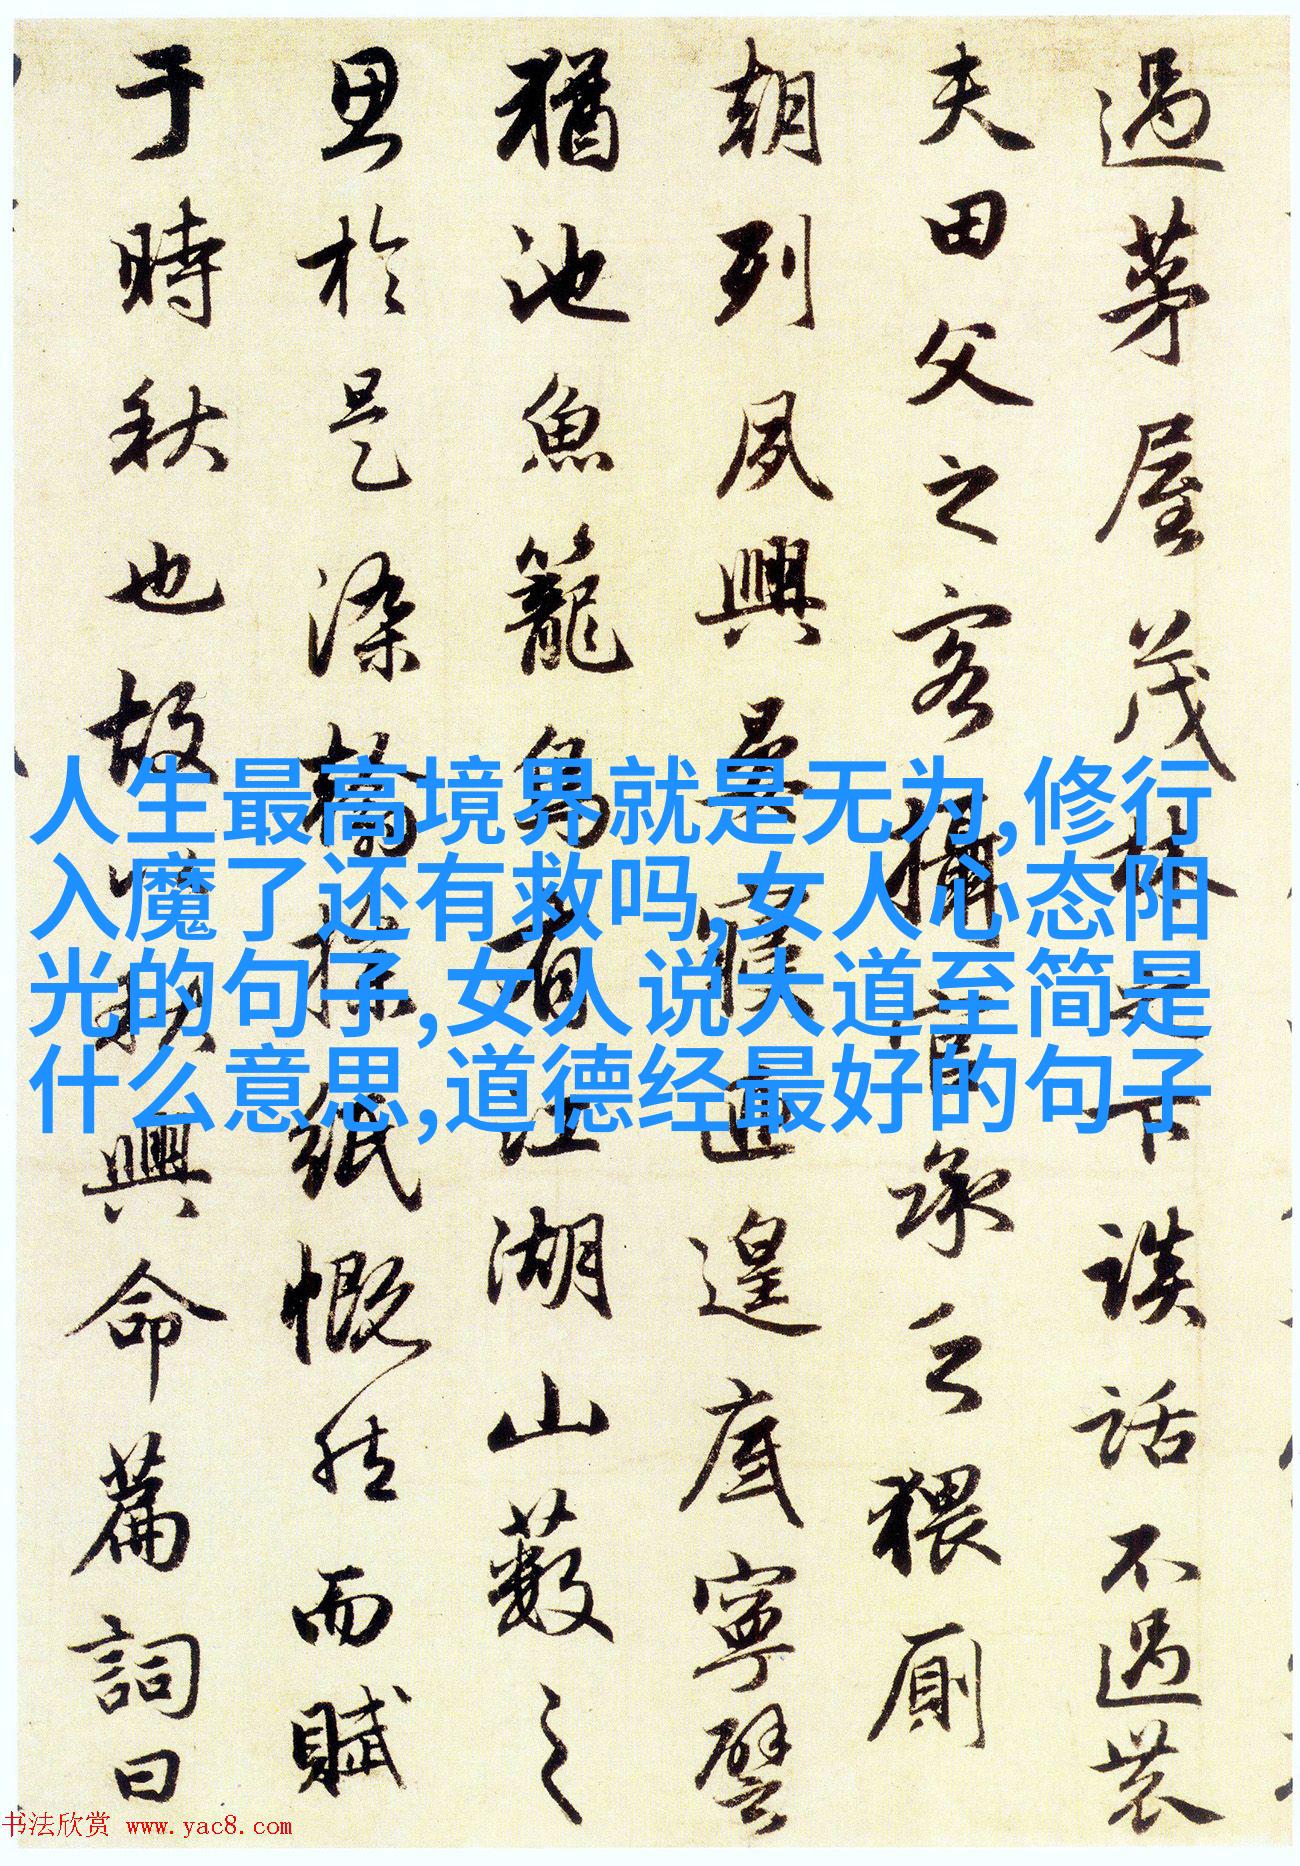 過茅屋茂林之下談話不過農
夫田父之客攝官承乏猥廁
朝列夙興晏寢匪遑底寧譬
猶池魚籠鳥有江湖山藪之
思於是染翰操紙慨然而賦
于時秋也故以秋興命篇詞曰
人生最高境界就是无为,修行
入魔了还有救吗,女人心态阳
光的句子,女人说大道至简是
什么意思,道德经最好的句子
书法欣赏 www.yac8.com